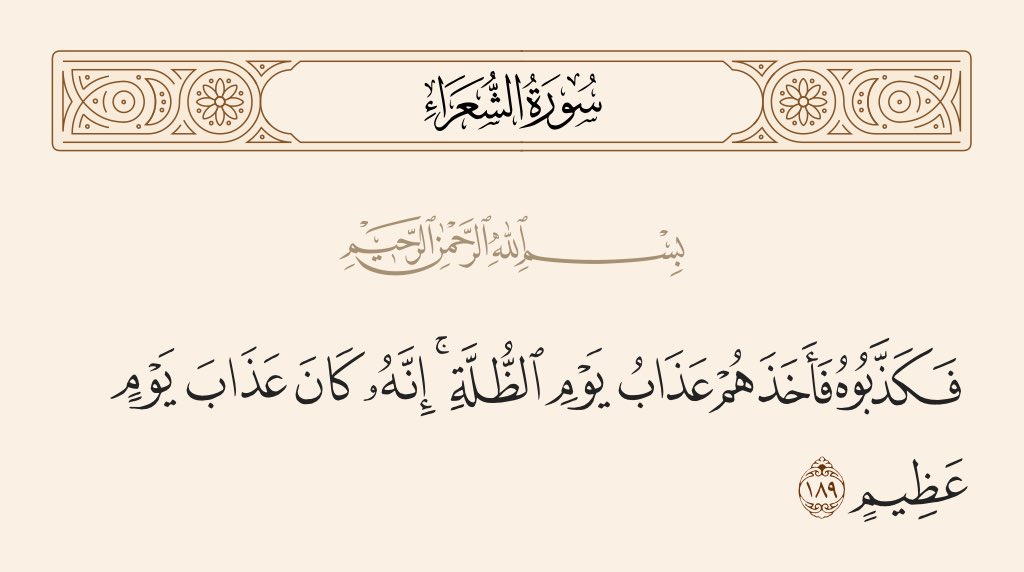 سُورَةُ الشُّعَرَاءِ
بِسْمِ ٱللَّهِ ٱلرَّحْمَٰنِ ٱلرَّحِيمِ
فَكَذَّبُوهُ فَأَخَذَهُمْ عَذَابُ يَوْمِ ٱلظُّلَّةِ ۚ إِنَّهُۥ كَانَ عَذَابَ يَوْمٍ
عَظِيمٍ ١٨٩